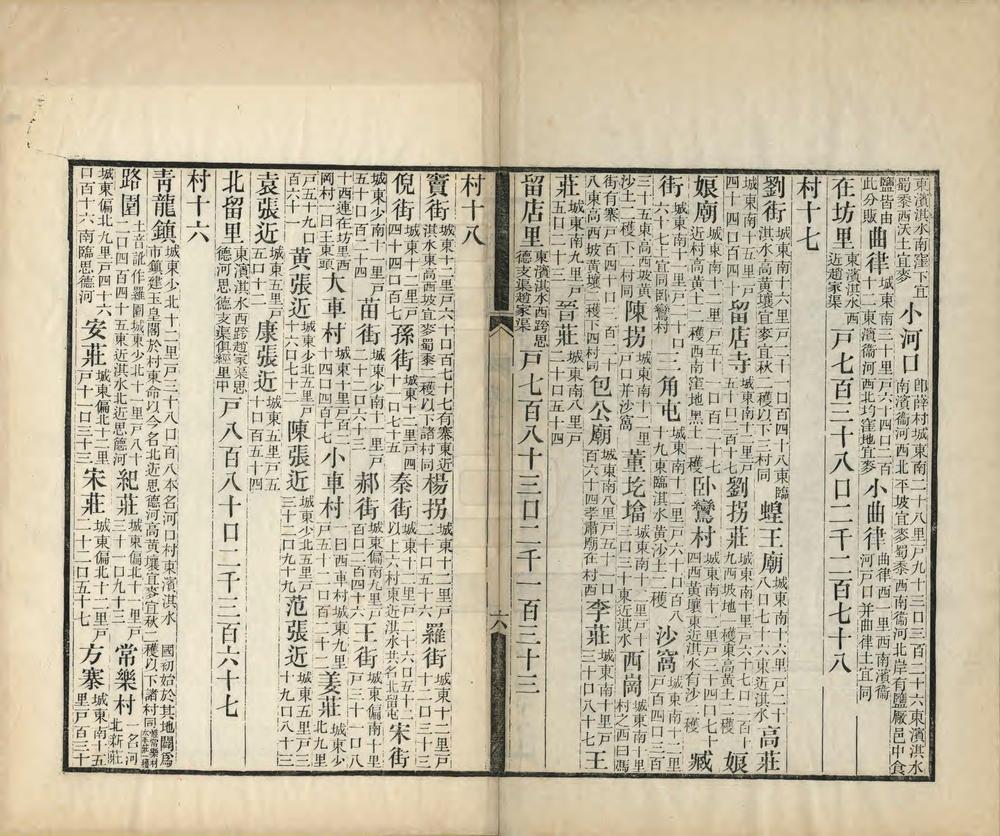 東濱淇水南窪下宜蜀黍西沃土宜麥 小河口 即薛村城東南二十八里戶九十三口三百二十六東濱淇水南濱衞河西北平坡宜麥蜀黍西南衞河北岸有鹽廠邑中食
鹽皆由此分販 曲律 城東南三十里戶六十四口二百二十二東濱衞河西北均窪地宜麥 小曲律 曲律西二里西南濱衞河戶口并曲律土宜同
在坊里 東濱淇水西近趙家渠 戶七百三十八口二千二百七十八
村十七
劉街 城東南十六里戶二十一口百四十八東臨淇水高黃壤宜麥宜秋二穫以下三村同 蝗王廟 城東南十六里戶二十八口七十六東近淇水 高莊
城東南十五里戶四十四口百四十 留店寺 城東南十二里戶五十口二百十七 劉拐莊 城東南十里戶六十七口二百十九西坡地一穫東高黃土二穫 娘
娘廟 城東南十二里戶五十一口百二十七近村高黃土二穫西南窪地黑土一穫 臥鸞村 城東南十二里戶三十四口七十四西黃壤東近淇水有沙一穫 臧
街 城東南十一里戶二十口六十七土宜同臥鸞村 三角屯 城東南十二里戶六十口百八十九東臨淇水黃沙土二穫 沙窩 城東南十二里戶百四口三百
三十五東高西坡黃沙土一穫下二村同 陳拐 城東南十二里戶口并沙窩 董圪壋 城東南十二里戶二十三口三十東近淇水 西崗 城東南十里村之西曰馮
街有寨戶百四十口二百八東高西坡黃壤二穫下四村同 包公廟 城東南八里戶五十一口百六十四孝肅廟在村西 李莊 城東南十里戶三十口八十七 王
莊 城東南九里戶五口二十三 晉莊 城東南八里戶二十口五十四
留店里 東濱淇水西跨思德支渠趙家渠 戶七百八十三口二千一百三十三
六
村十八
竇街 城東十二里戶六十口百七十七有寨東近淇水東高西坡宜麥蜀黍一穫以下諸村同 楊拐 城東十二里戶二十口五十六 羅街 城東十二里戶十二口三十三
倪街 城東十二里戶四十四口百七 孫街 城東十一里戶四十一口七十五 秦街 城東十一里戶二十六口五十二以上六村東近淇水共名北留屯 宋街
城東少南十一里戶五十口百四十 苗街 城東少南十一里戶二十二口六十三 郝街 城東偏南九里戶百口二百四十六 王街 城東偏南十里戶三十一口八
十西連在坊里西岡村一曰王東頭 大車村 城東十里戶百二十四口四百十七 小車村 一曰西車村城東九里戶五十一口百二十二 姜莊 城東少北九里
戶五十九口百六十一 黃張近 城東少北五里戶十六口七十二 陳張近 城東少北五里戶三十二口九十九 范張近 城東五里戶三十九口八十三
袁張近 城東五里戶五口十二 康張近 城東五里戶四十口百五十四
北留里 東濱淇水西跨趙家渠思德河思德支渠俱經里中 戶八百八十口二千三百六十七
村十六
青龍鎮 城東少北十二里戶三十八口百八本名河口村東濱淇水國初始於其地闢為市鎮建玉皇閣於村東命以今名北近思德河高黃壤宜麥宜秋二穫以下諸村同
路圍 土音訛作羅圍城東少北十一里戶八十二口四百四十五東近淇水北近思德河 紀莊 城東偏北十一里戶三十一口九十三 常樂村 一名河北新莊
城東偏北九里戶四十六口百十六南臨思德河 安莊 城東偏北十二里戶十口三十三 宋莊 城東偏北十二里戶二十二口五十七 方寨 城東南十五里戶百三十